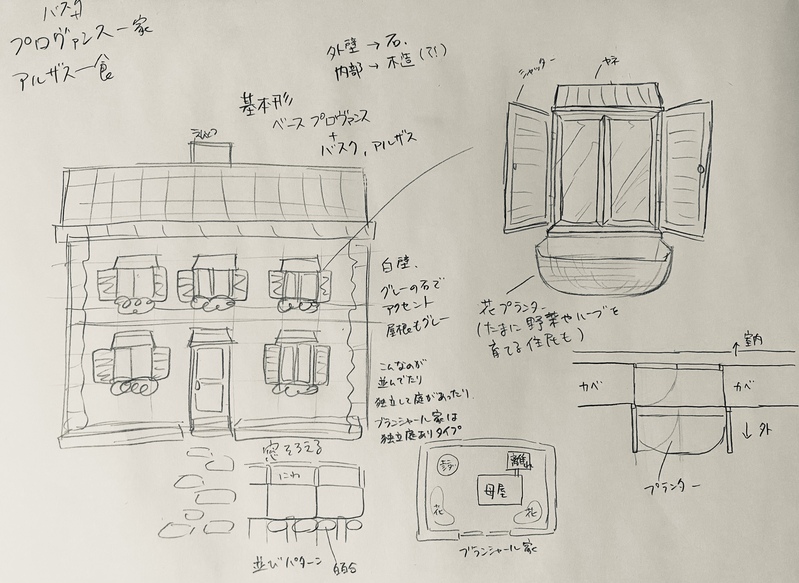 バスク
プロヴァンス一家
アルザス一食
外壁→石.
内部→木造(で!)
基本形
ベースプロヴァンス
+
バスク, アルザス
えんとつ
シャッター
ヤネ
白壁.
グレーの石で
アクセント
屋根もグレー
花プランター
(たまに野菜やハーブを
育てる住民も)
こんなのが
並んでたり
独立して庭があったり.
ブランシャール家は
独立庭ありタイプ
↑室内
カベ
カベ
↓外
プランター
窓そろえる
にわ
並びパターン
離れ
母屋
花
花
ブランシャール家